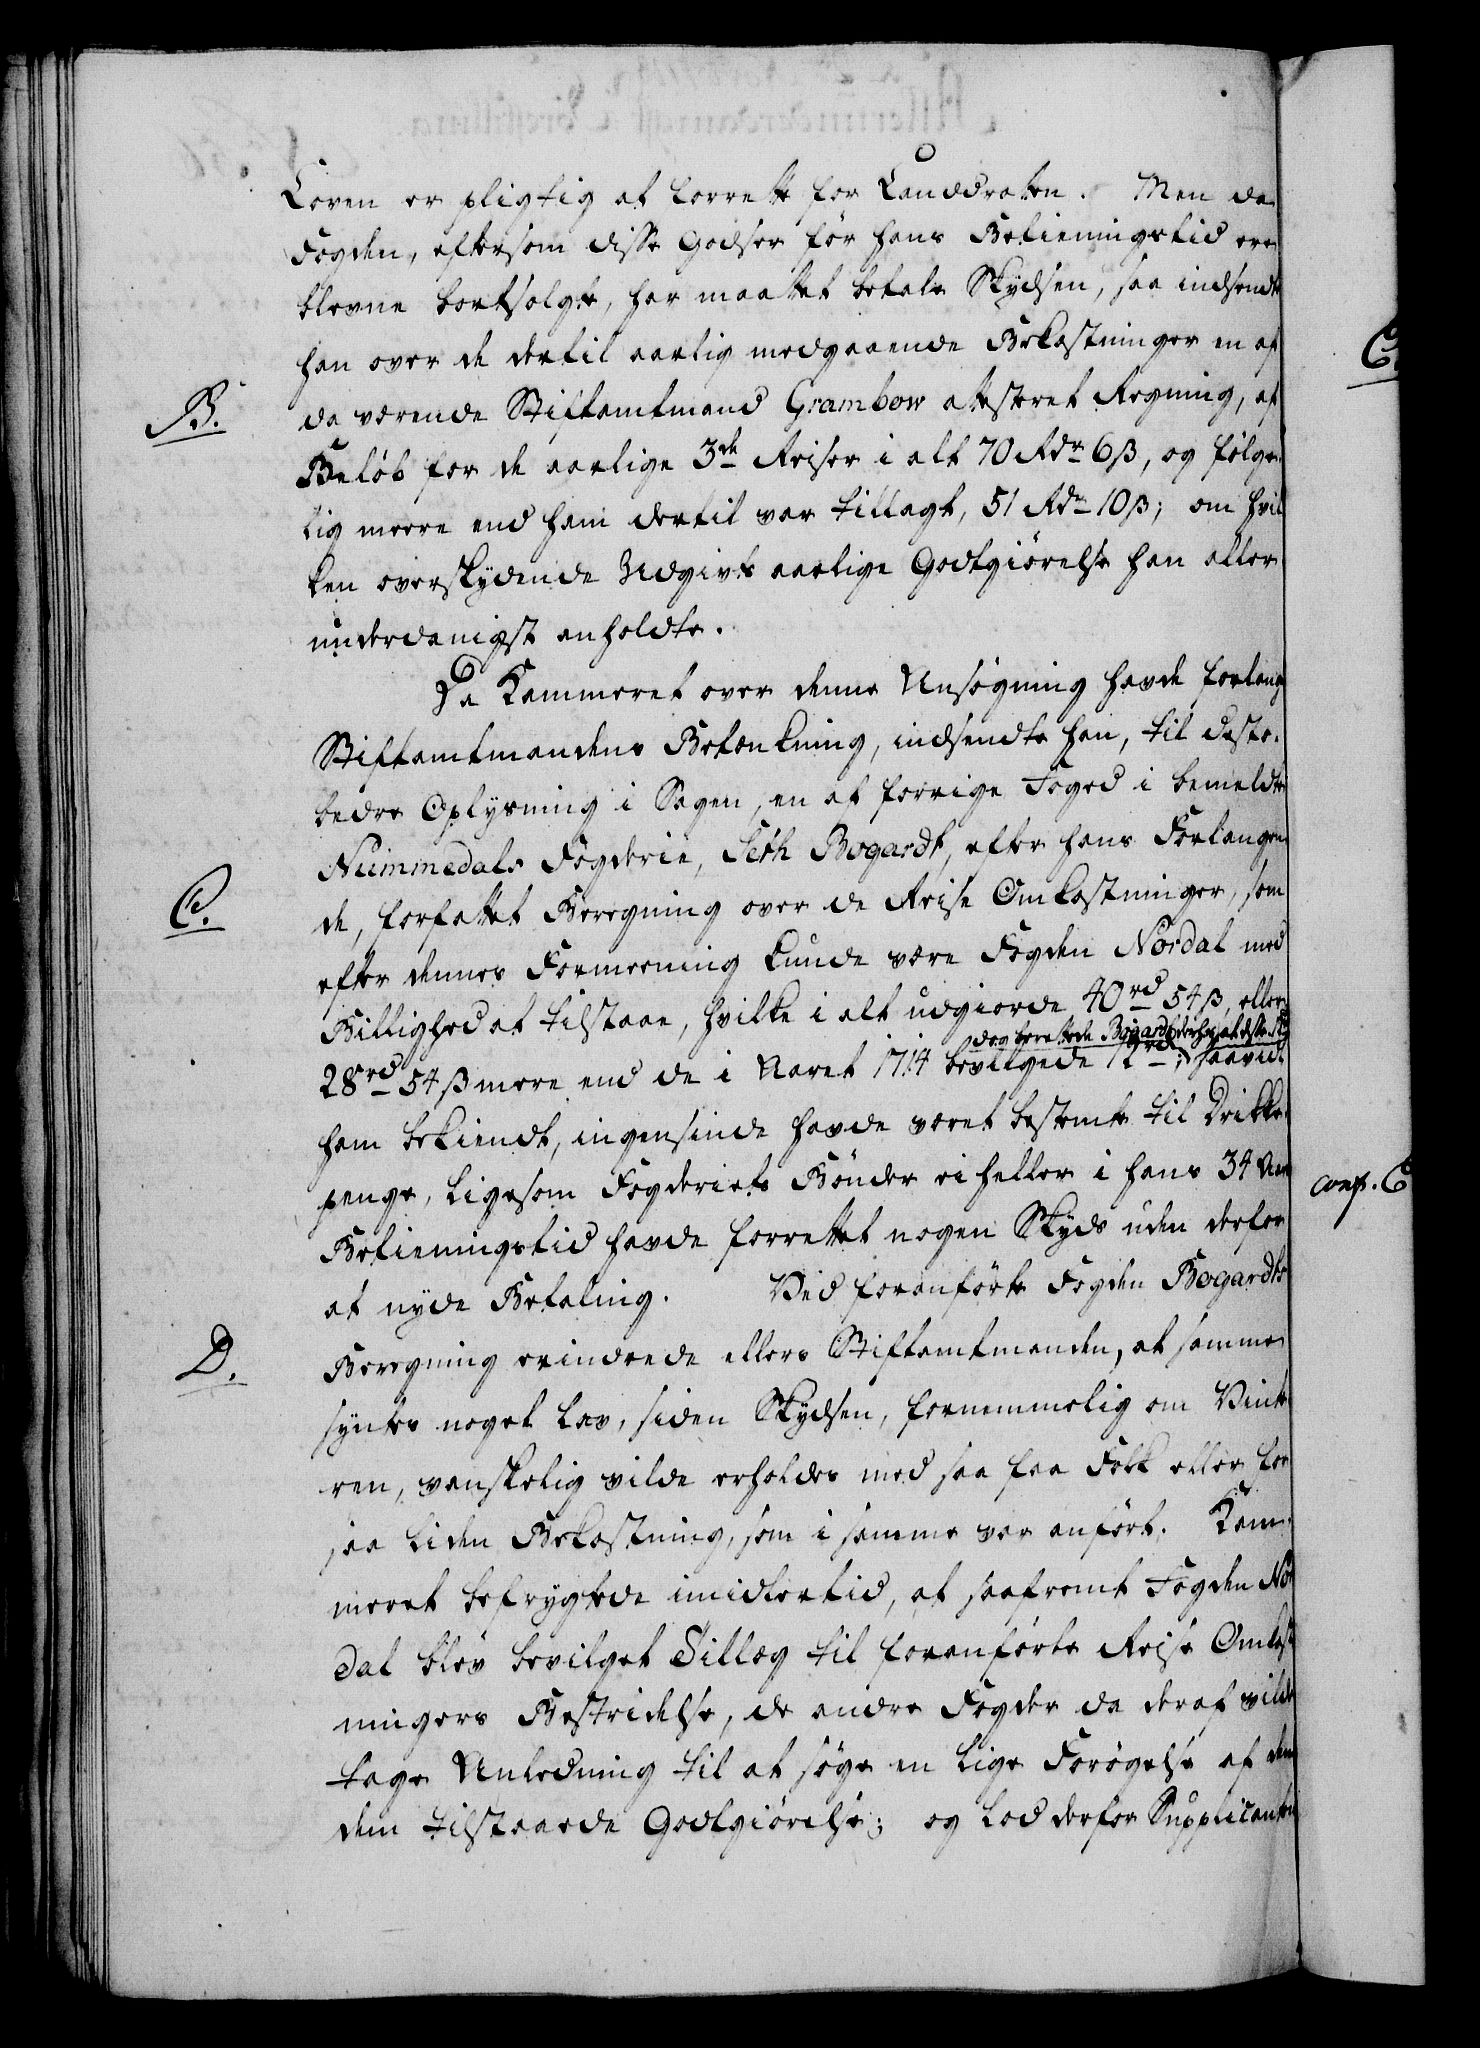 Loven er pligtig at forrette for Landdraaten. Men da
Fogden, eftersom disse Godser før hans Betieningstid ere
blevne bortsolgte, har maattet betale Skydsen, saa indsendte
han over de dertil aarlig medgaaende Bekostninger en af
B. da værende Stiftamtmand Grambow attesteret Regning, af
Beløb for de aarlige 3de Reiser i alt 70 Rdr 6 ß, og følge-
lig meere end ham dertil var tillagt, 51 Rdr 10 ß; om hvil
ken overskydende Udgivts aarlige Godtgiørelse han aller
underdanigst anholdte.
Da Kammeret over denne Ansøgning havde forlangt
Stiftamtmandens Betænkning, indsendte han, til deste
bedre Oplysning i Sagen, en af forrige Foged i bemeldte
Nummedals Fogderie, Seth Bogardt, efter hans Forlangen
C. de, forfattet Beregning over de Reise Omkostninger, som
efter dennes Formeening kunde være Fogden Nordal med
Billighed at tilstaae, hvilke i alt udgiorde 40 rd 54 ß, eller
dog berettede Bogardt derhos, at disse 12 rd
28 rd 54 ß mere end de i Aaret 1714 bevilgede 12 rd; saavidt
ham bekiendt, ingensinde havde været bestemte til Drikke
penge, ligesom Fogderiets Bønder ei heller i hans 34 Aars
conf. C
Betieningstid havde forrettet nogen Skyds uden derfor
at nyde Betaling. Ved foranførte Fogden Bogardts
D. Beregning erindrede ellers Stiftamtmanden, at samme
syntes noget lav, siden Skydsen, fornemmelig om Vinte
ren, vanskelig vilde erholdes med saa faa Folk eller for
saa liden Bekostning, som i samme var anført. Kam
meret befrygtede imidlertid, at saafremt Fogden Nor
dal blev bevilget Tillæg til foranførte Reise Omkost
ningers Bestridelse, de andre Fogder da deraf vilde
tage Anledning til at søge en lige Forøgelse af den
dem tilstaaede Godtgiørelse; og lod derfor Supplicanten